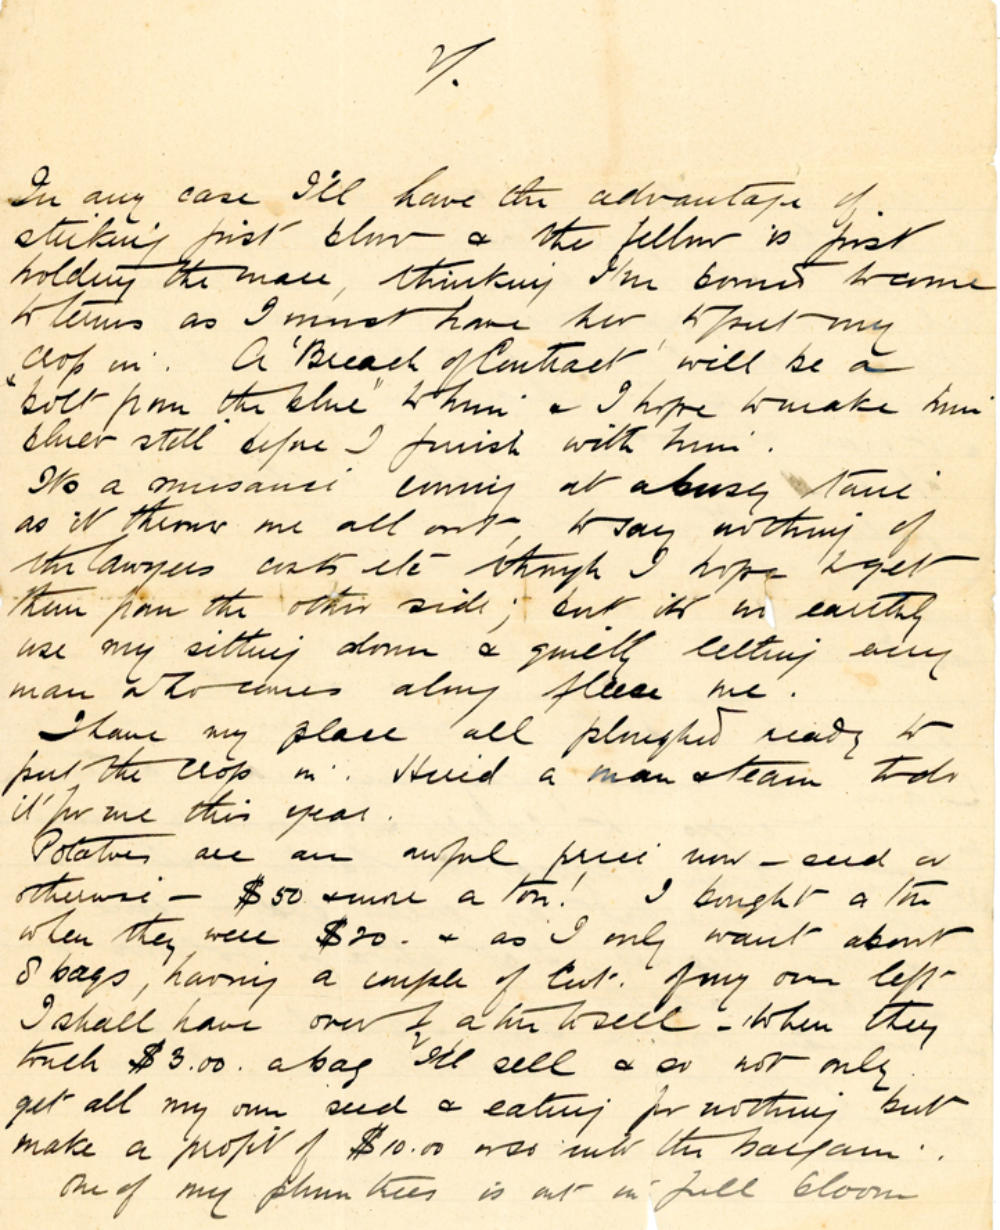 2/.
In any case I'll have the advantage of
striking first blow & the fellow is just
holding the mare, thinking I'm bound to come
to terms as I must have her to put my
crop in. A 'Breach of Contract' will be a
"bolt from the blue" to him & I hope to make him
bluer still before I finish with him.
It's a nuisance coming at a busy time
as it throws me all out, to say nothing of
the lawyers costs etc though I hope to get
them from the other side; but it's no earthly
use my sitting down & quietly letting every
man who comes along fleece me.
I have my place all ploughed ready to
put the crop in. Hired a man & team to do
it for me this year.
Potatoes are an awful price now - seed or
otherwise - $50 & more a ton! I bought a ton
when they were $20. & as I only want about
8 bags, having a couple of Cwt. of my own left
I shall have over ½ a ton to sell - When they
touch $3.00. a bag I'll sell & so not only
get all my own seed & eating for nothing but
make a profit of $10.00 or so into the bargain.
One of my plum trees is out in full bloom